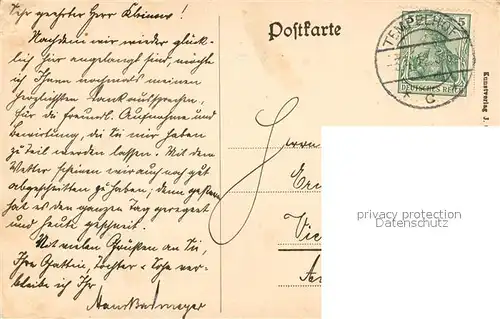 Sehr geehrter Herr Kleinow!
Nachdem wir wieder glück-
lich hier angelangt sind, möchte
ich Ihnen nochmals meinen
herzlichsten Dank aussprechen,
für die freundl. Aufnahme und
Bewirtung, die Sie mir haben
zu teil werden lassen. Mit dem
Wetter scheinen wir auch noch gut
abgeschnitten zu haben; denn gestern
hat es den ganzen Tag geregnet
und heute geschneit.
Mit vielen Grüßen an Sie,
Ihre Gattin, Tochter + Sohn ver-
bleibe ich Ihr
Postkarte
TEMPELHOF
* C
5
DEUTSCHES REICH
Kunstverlag J.
Herrn
privacy protection
Datenschutz